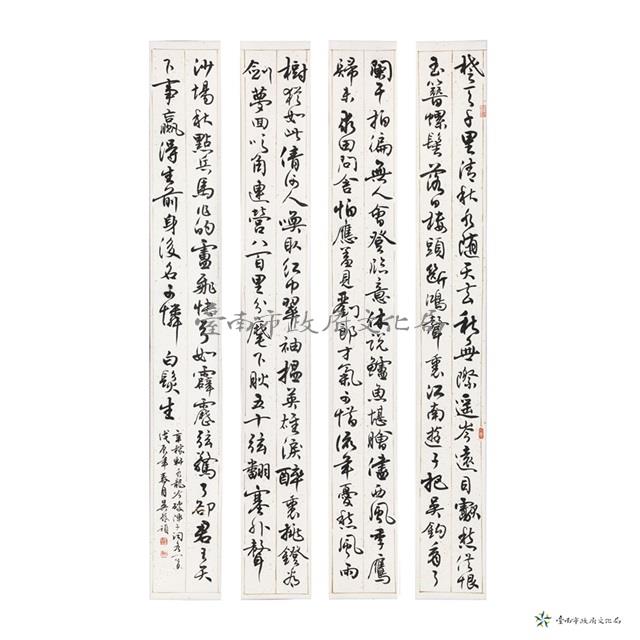 楚天千里清秋水隨天去秋無際遙岑遠目獻愁供恨
玉簪螺髻落日樓頭斷鴻聲裏江南遊子把吳鉤看了
闌干拍徧無人會登臨意休說鱸魚堪膾儘西風季鷹
歸未求田問舍怕應羞見劉郎才氣可惜流年憂愁風雨
樹猶如此倩何人喚取紅巾翠袖搵英雄淚醉裏挑鐙看
劍夢回吹角連營八百里分麾下炙五十弦翻塞外聲
沙場秋點兵馬作的盧飛快弓如霹靂弦驚了卻君王天
下事贏得生前身後名可憐白髮生
辛稼軒水龍吟破陣子詞各一首
戊辰年春月吳
臺南市政府文化局
臺南市政府文化局